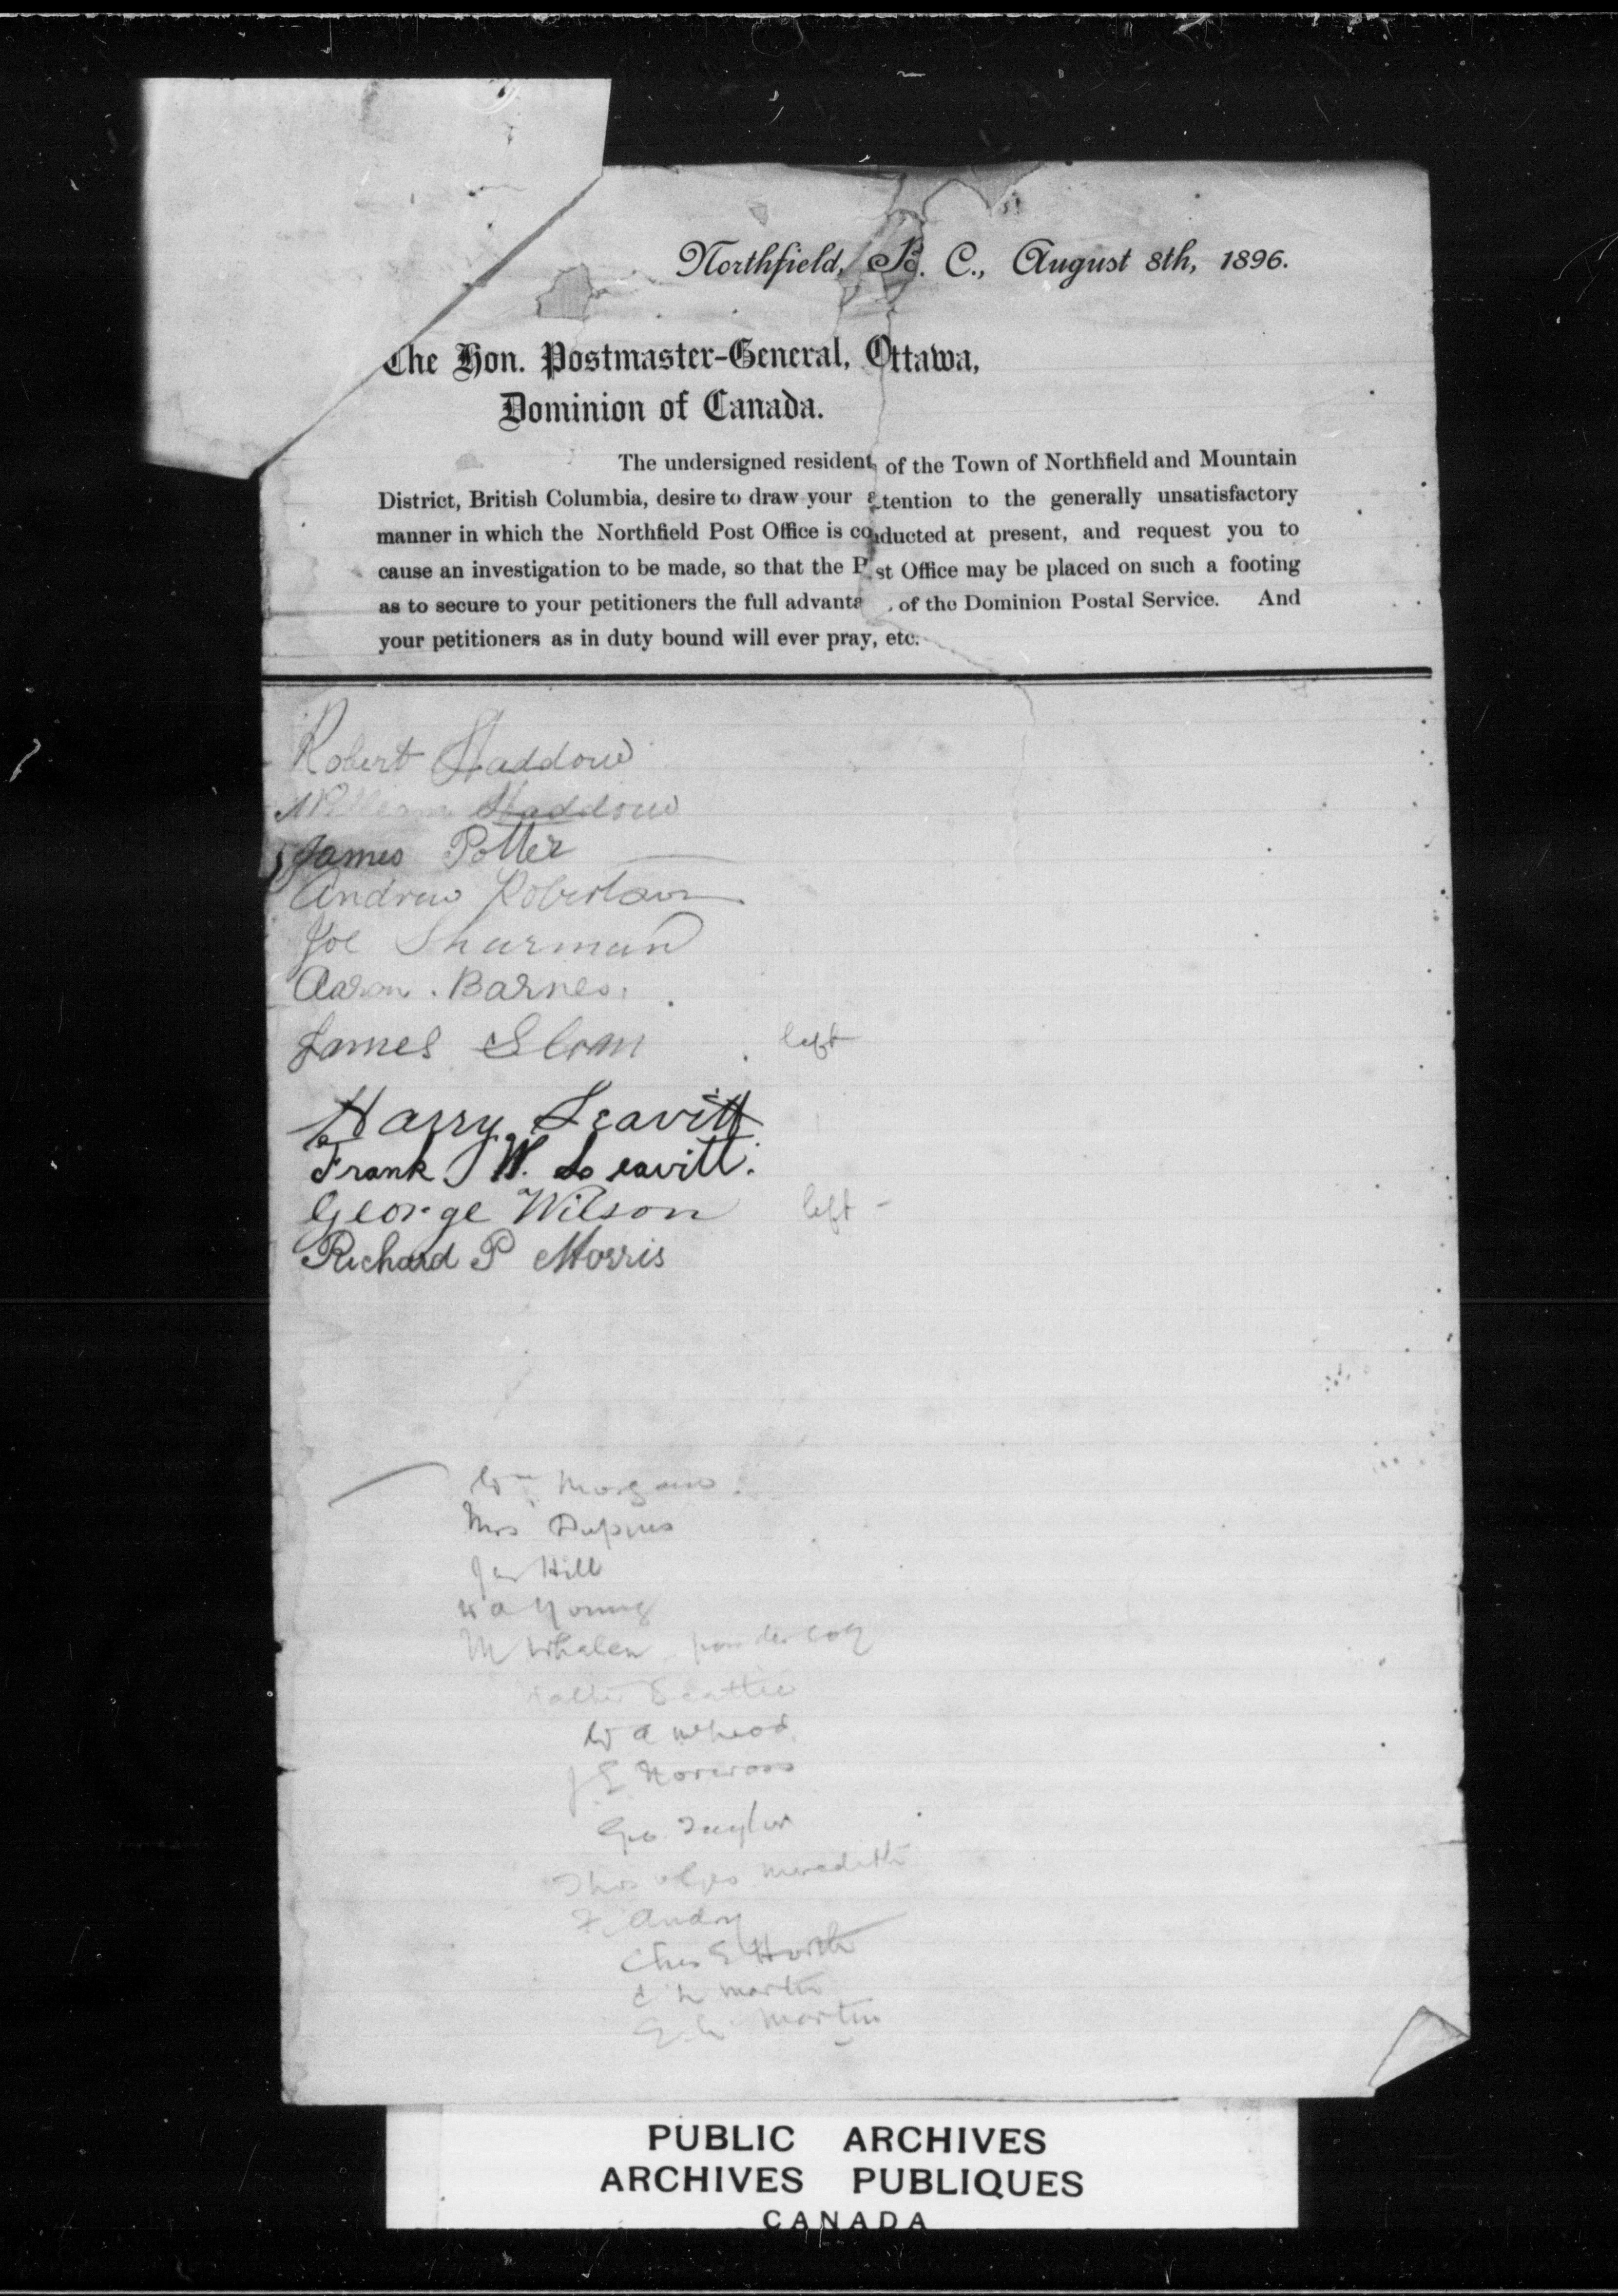 Northfield, B. C., August 8th, 1896.
The Hon. Postmaster-General, Ottawa,
Dominion of Canada.
The undersigned resident of the Town of Northfield and Mountain
District, British Columbia, desire to draw your attention to the generally unsatisfactory
manner in which the Northfield Post Office is conducted at present, and request you to
cause an investigation to be made, so that the Post Office may be placed on such a footing
as to secure to your petitioners the full advanta of the Dominion Postal Service. And
your petitioners as in duty bound will ever pray, etc.
Robert Haddow
William Haddow
James Potter
Andrew Robertson
Joe Shurman
Aaron. Barnes.
James Sloan left
Harry Leavitt
Frank W. Leavitt.
George Wilson left -
Richard P Morris
Wm Morgan
Mrs
Jas Hill
W a Young
M Whalen
Beattie
W a McLeod
J E Norcross
Geo. Taylor
Thos Meredith
F. Andry
Chas E
Martin
Martin
PUBLIC ARCHIVES
ARCHIVES PUBLIQUES
CANADA